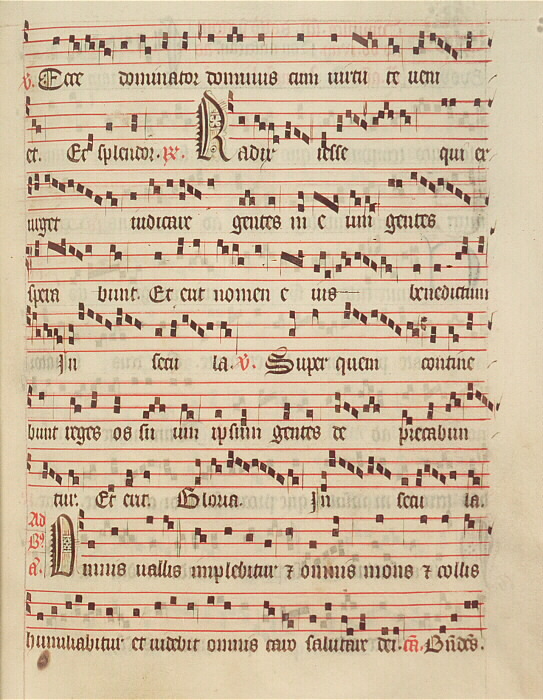 V. Ecce dominator dominus cum virtute veni
et. Et splendor. R. Radix iesse qui ex
urget iudicare gentes in e um gentes
spera bunt. Et erit nomen e ius benedictum
In secu la. V. Super quem contine
bunt reges os su um ipsum gentes de precabun
tur. Et erit. Gloria. In secu la.
Ad
B9
a. Omnis vallis implebitur ⁊ omnis mons ⁊ collis
humiliabitur et videbit omnis caro salutare dei. ca. Bndcs.